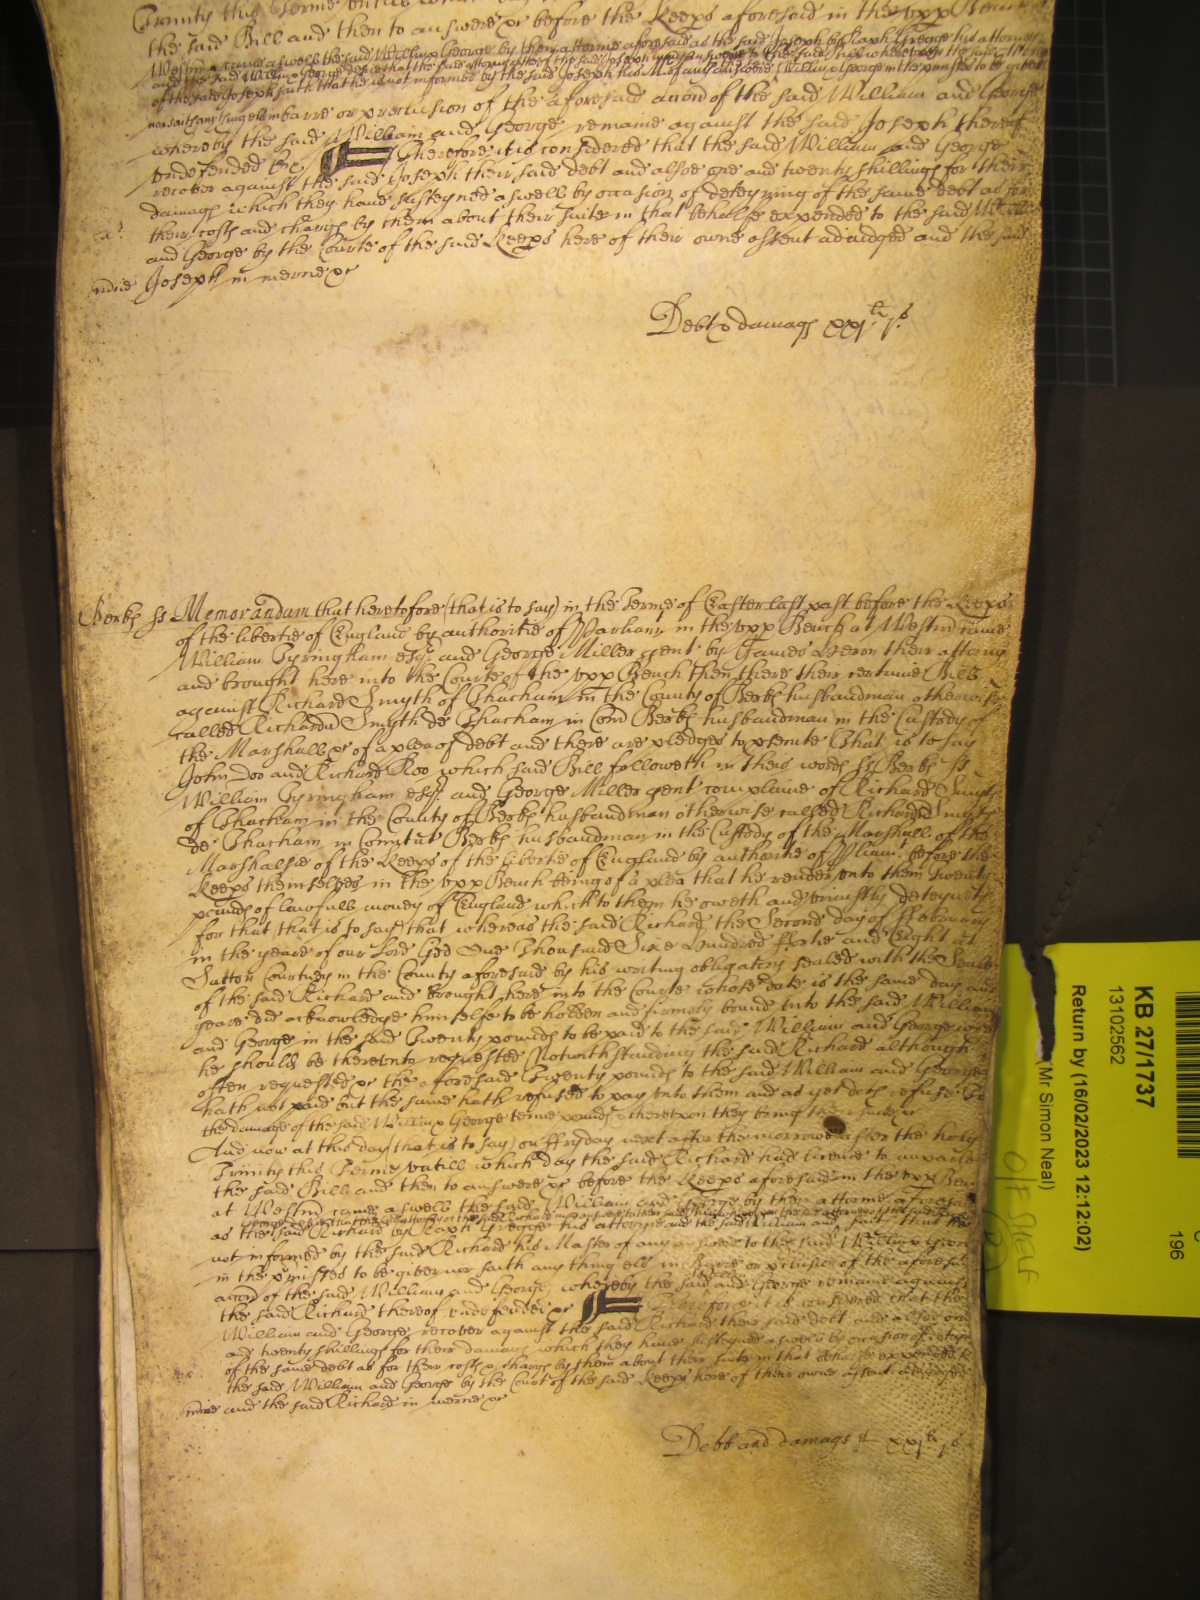 the said Bill and then to answere &c before the Keeps aforesaid in the upp Bench
Westm came aswell the said William & George by their attornie aforesaid as the said Joseph by Raph Gregge his attornie
of the said Joseph saith that he is not informed by the said Joseph his Master of any answere William & George in the premisses to be given
nor saith any thinge els in barre or preclusion of the aforesaid accon of the said William and George
whereby the said William and George remaine against the said Joseph thereof
undefended &c Therefore it is considered that the said William and George
recover against the said Joseph their said debt and alsoe one and twenty shillings for their
damags which they have susteyned aswell by occasion of deteyning of the same debt as for
their costs and chargs by them about their suite in that behalfe expended to the said William
and George by the Courte of the said Keeps here of their owne assent adiudged and the said
Joseph in mercie &c
Debt & damags xxj li js
Berks ss Memorandum that heretofore (that is to say) in the Terme of Easter last past before the Keeps
of the libertie of England by authoritie of Parliam in the upp Bench at Westm came
William Tyringham esqr and George Miller gent by James Heron their attorny
and brought here into the Courte of the upp Bench then there their certaine Bill
against Richard Smyth of Thacham in the County of Berks husbandman otherwise
called Richard Smyth de Thacham in Com Berks husbandman in the Custody of
the Marshall &c of a plea of debt and there are pledges to prosecute That is to say
John Doo and Richard Roo which said Bill followeth in theis words ss Berks ss
William Tyringham esqr and George Miller gent complaine of Richard Smyth
of Thacham in the County of Berks husbandman otherwise called Richard Smyth
de Thacham in Comitat Berks husbandman in the Custody of the Marshall of the
Marshalsie of the Keeps of the libertie of England by authoritie of Parliamt before the
Keeps themselves in the upp Bench being of a plea that he render unto them twenty
pounds of lawfull money of England which to them he oweth and uniustly deteyneth
for that that is to say that whereas the said Richard the Second day of February
in the yeare of our Lord God One Thousand Sixe Hundred ffortie and Eight at
Sutton Courtney in the County aforesaid by his writing obligatory sealed with the Seale
of the said Richard and brought here into the Courte whose date is the same day and
yeare did acknowledge himselfe to be holden and firmely bound unto the said William
and George in the said Twenty pounds to be paid to the said William and George when
he should be thereunto requested Notwithstanding the said Richard although
often requested &c the aforesaid Twenty pounds to the said William and George
hath not paid but the same hath refused to pay unto them and as yet doth refuse To
the damage of the said William & George tenne pounds & thereupon they bring their suite &c
And now at this day (that is to say) on ffryday next after the morrowe after the holy
Trinity this Terme untill which day the said Richard had licence to imparle
the said Bill and then to answere &c before the Keeps aforesaid in the upp Bench
at Westm came aswell the said William and George by their attornie aforesaid
as the said Richard by Raph Gregge his attornie and the said William and
not informed by the said Richard his Master of any answere to the said William & George
in the premisses to be given nor saith any thing els in Barre or preclusion of the aforesaid
accon of the said William and George whereby the said and George remaine against
the said Richard thereof undefended &c Therefore it is considered that the
William and George recover against the said Richard their said debt and alsoe one
and twenty shillings for their damags which they have susteyned aswell by occasion of deteyning
of the same debt as for their costs & chargs by them about their suite in that behalfe expended to
the said William and George by the Court of the said Keeps here of their owne assent adiudged
and the said Richard in mercie &c
Debt and damags xxj li js
KB 27/1737
13102562
Return by (16/02/2023 12:12:02)
(Mr Simon Neal)
196
O/F SHELF